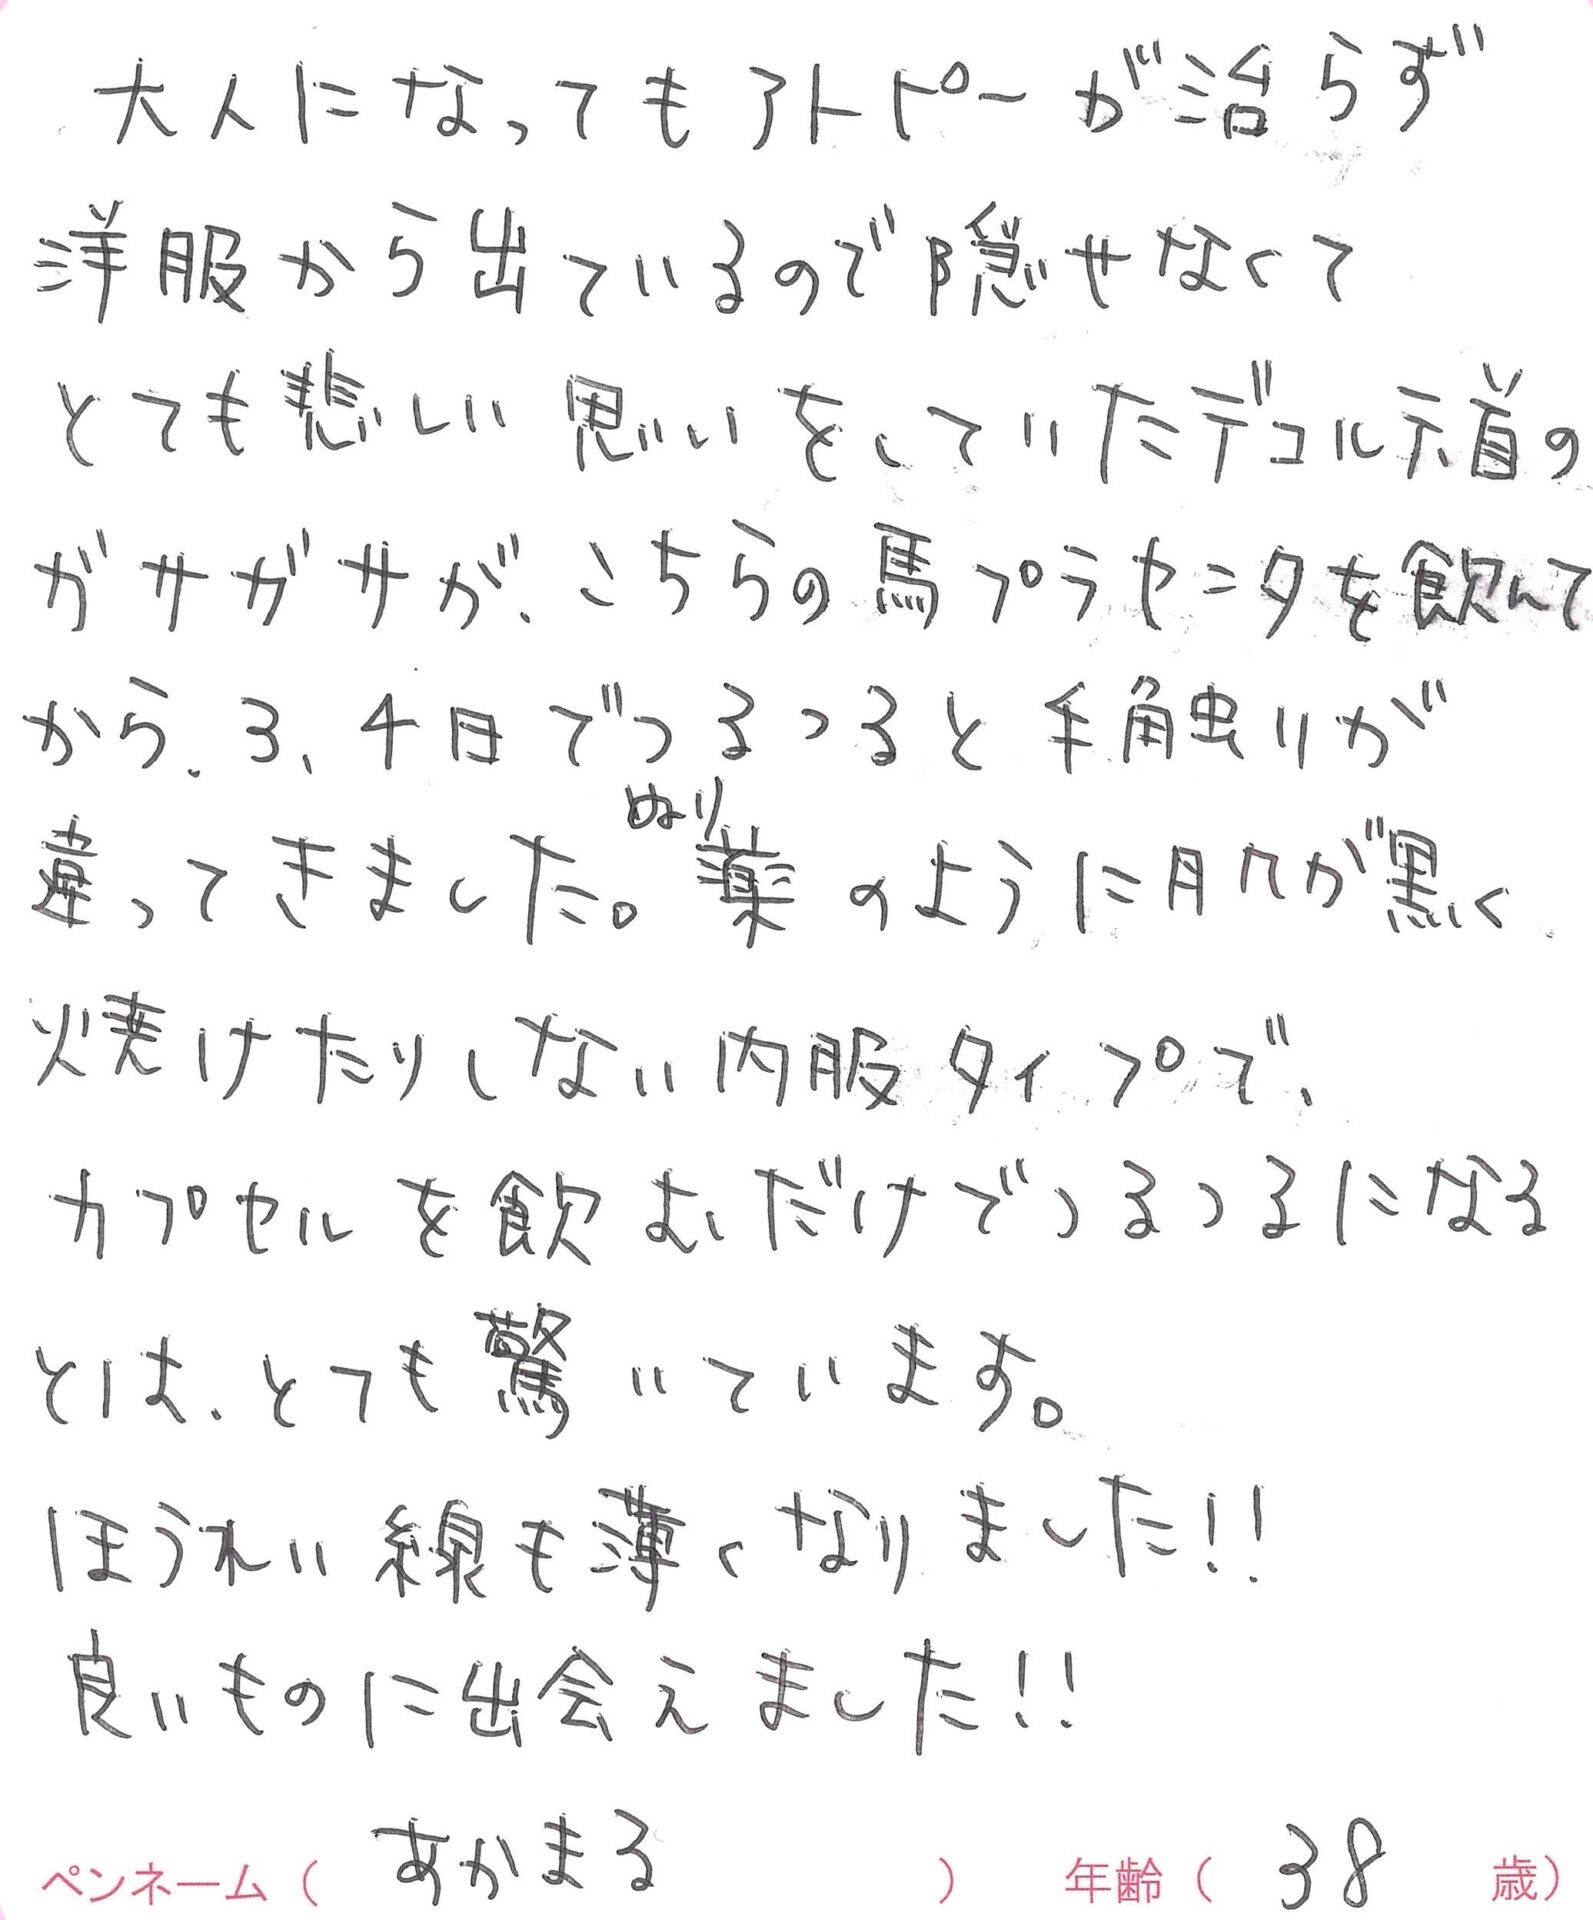 大人になってもアトピーが治らず
洋服から出ているので隠せなくて
とても悲しい思いをしていたデコルテ、首の
ガサガサが、こちらの馬プラセンタを飲んで
から、3、4日でつるつると手触りが
違ってきました。ぬり薬のように肌が黒く
焼けたりしない内服タイプで、
カプセルを飲むだけでつるつるになる
とは、とても驚いています。
ほうれい線も薄くなりました!!
良いものに出会えました!!
ペンネーム( あかまる ) 年齢( 38 歳)